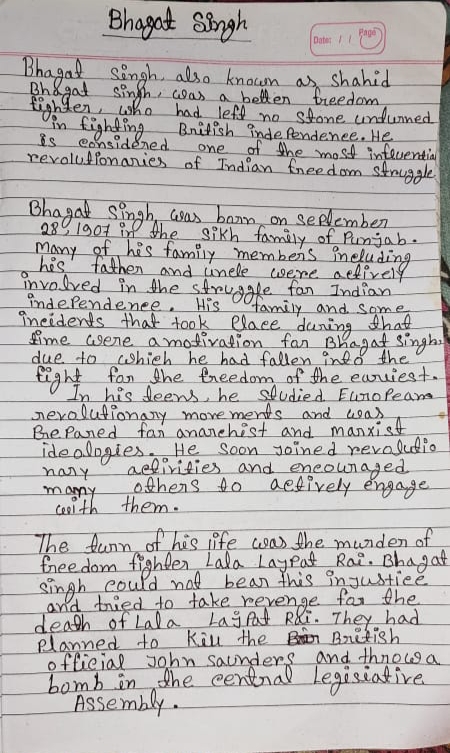 Bhagat Singh
Date: / / Page
Bhagat Singh, also known as Shahid
Bhagat singh, was a better freedom
fighter, who had left no stone undurned
in fighting British independenee. He
is considered one of the most influential
revolutionaries of Indian freedom struggle
Bhagat Singh was barn on September
28, 1907 in the Sikh family of Punjab.
Many of his family members ineluding
his father and unele were aetively
involved in the struggle far Indian
independenee. His family and some
incidents that took place during that
time were a motivation far Bhagat Singh.
due to which he had fallen into the
fight far the freedom of the earliest.
In his teens, he studied European
revolutionary movements and was
Prepared far anarehist and marxist
idealogies. He soon joined revolutio
nary aetivities and encouraged
many others to aetively engage
with them.
The turn of his life was the murder of
freedom fighter Lala Lajpat Rai. Bhagat
singh could not bear this injustiee
and tried to take revenge far the
death of Lala Lajpat Rai. They had
planned to Kill the British
official John Saunders and throw a
bomb in the central Legislative
Assembly.